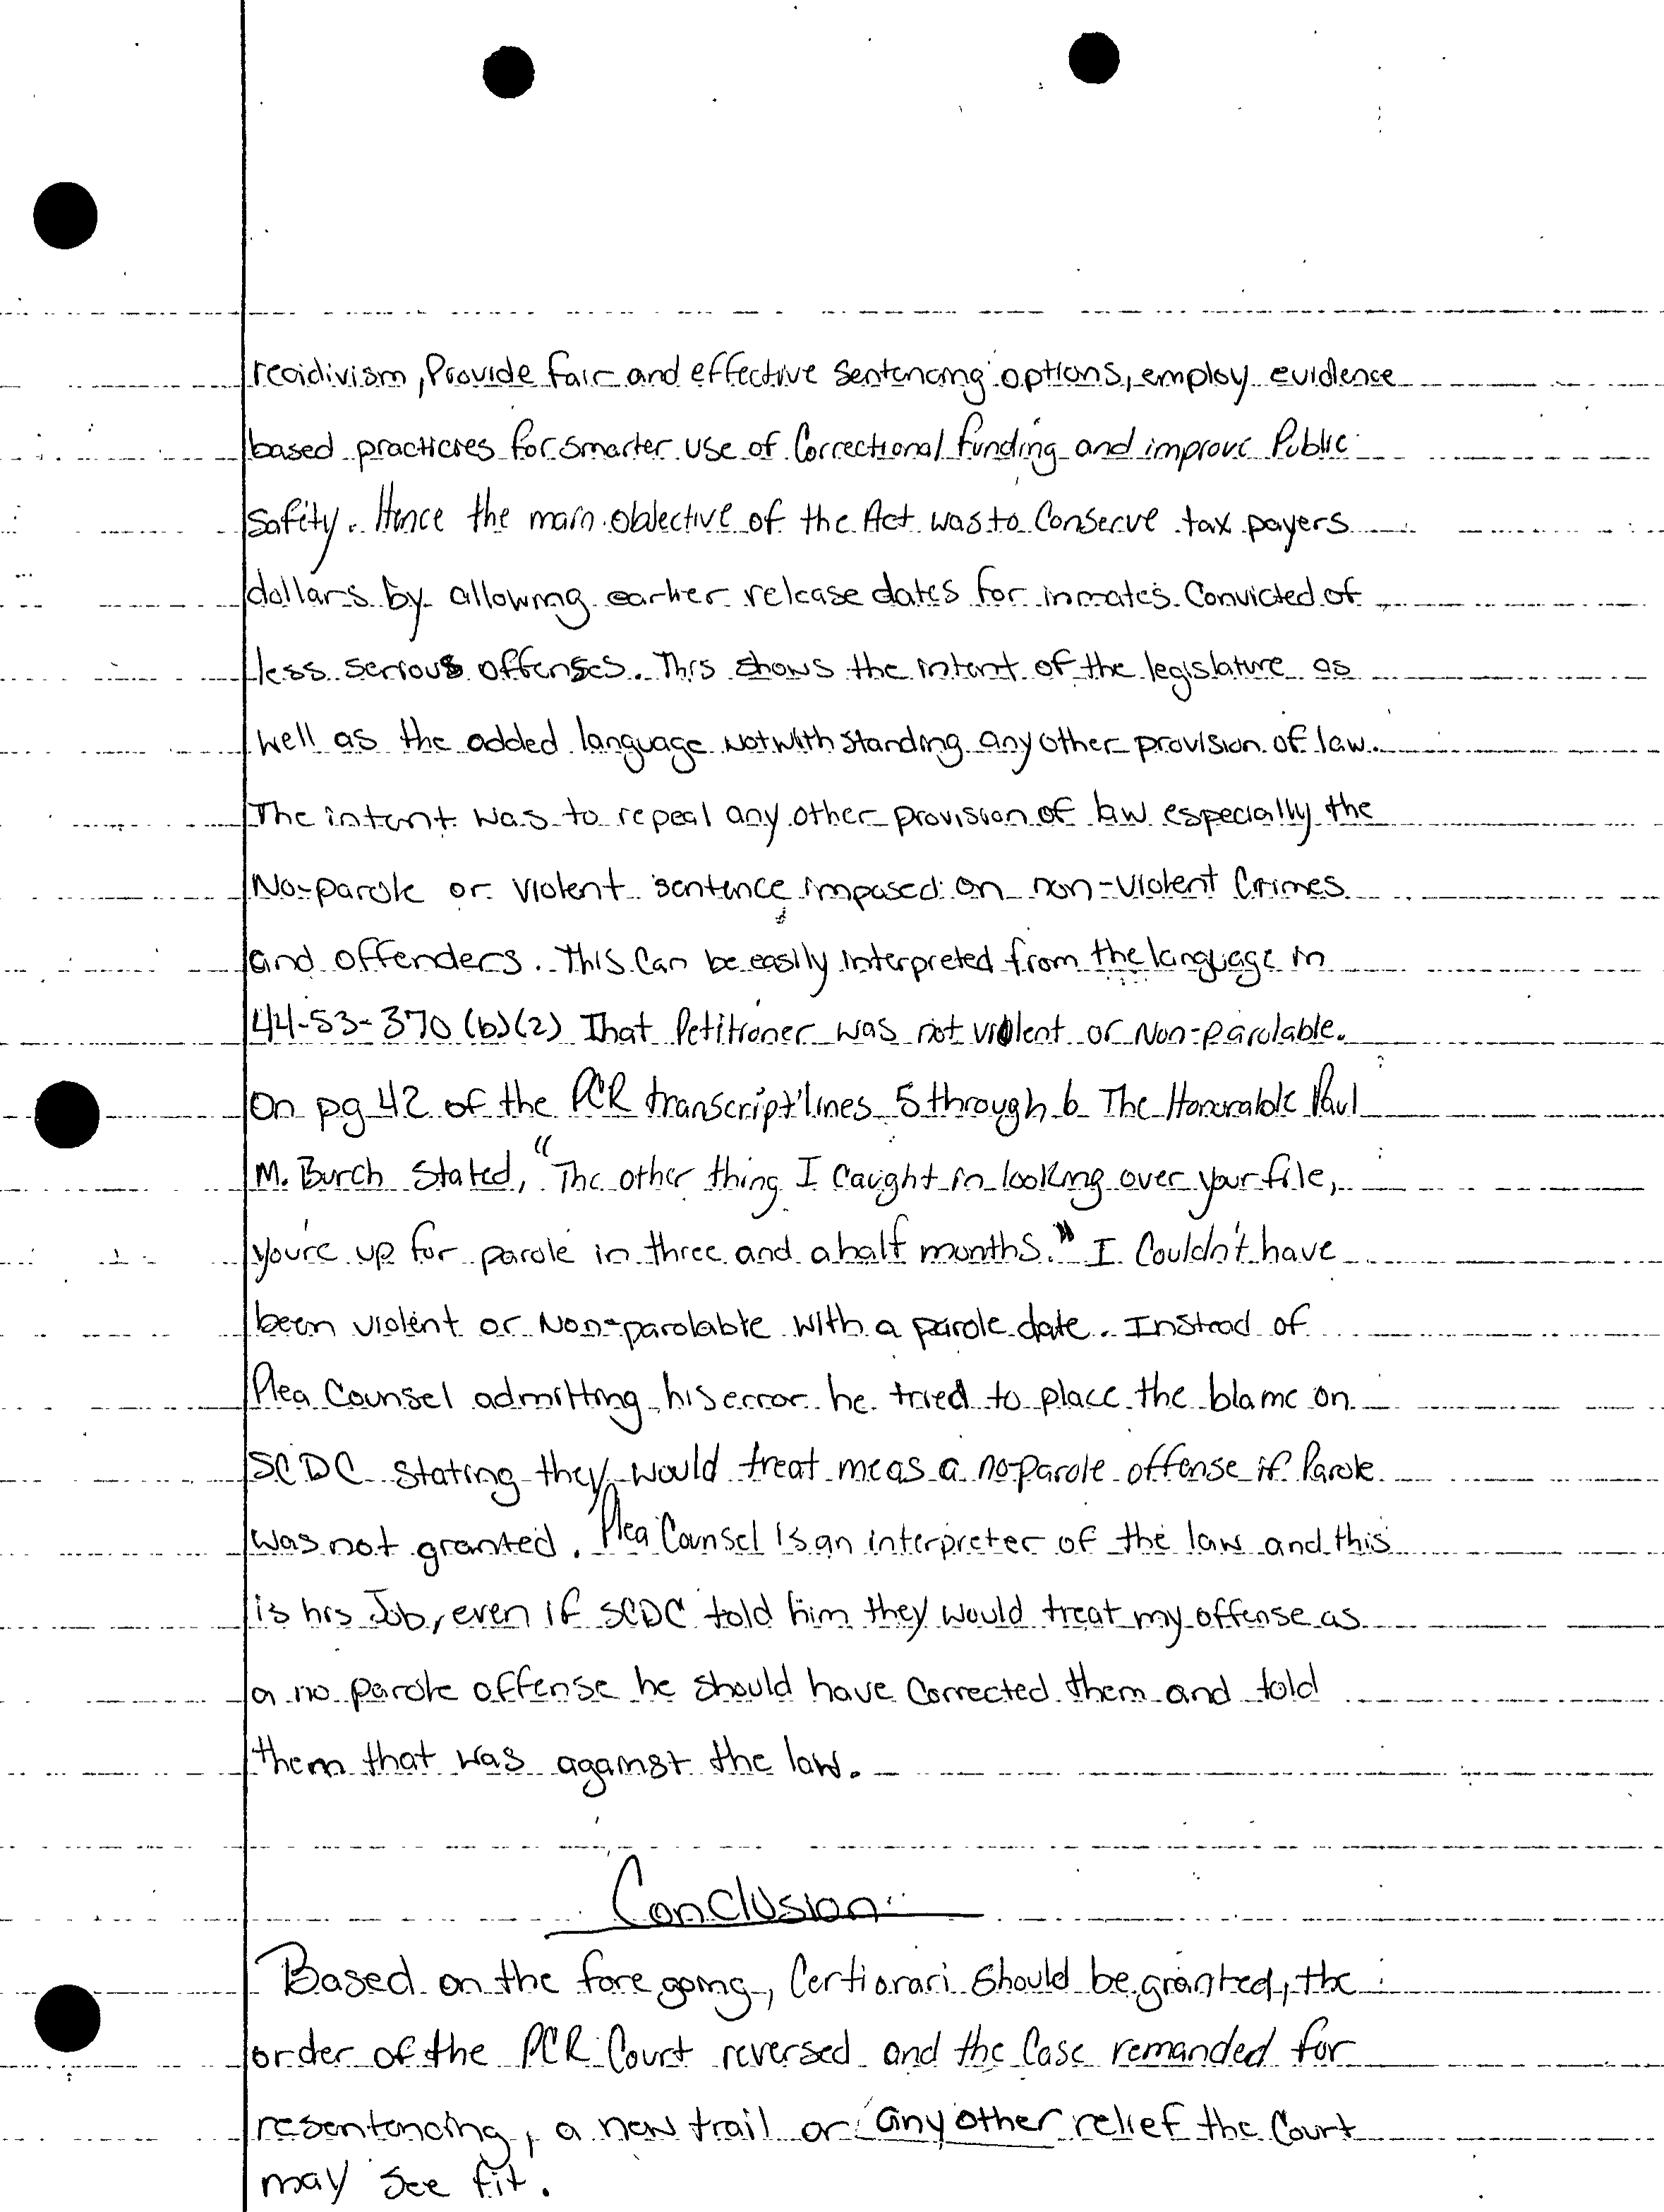 recidivism, Provide fair and effective sentencing options, employ evidence
based practicies for smarter use of Correctional funding and improve Public
Safety. Hence the main objective of the Act was to Conserve tax payers
dollars by allowing earlier release dates for inmates Convicted of
less serious offenses. This shows the intent of the legislature as
well as the added language Notwithstanding any other provision of law.
The intent was to repeal any other provision of law especially the
No-parole or violent sentence imposed on non-violent Crimes
and offenders. This Can be easily interpreted from the language in
44-53-370 (b)(2) That Petitioner was not violent or Non-parolable.
On pg 42 of the PCR transcript lines 5 through 6 The Honorable Paul
M. Burch Stated, "The other thing I Caught in looking over your file,
you're up for parole in three and a half months." I Couldn't have
been violent or Non-parolable with a parole date. Instead of
Plea Counsel admitting his error he tried to place the blame on
SCDC stating they would treat me as a no parole offense if Parole
was not granted. Plea Counsel is an interpreter of the law and this
is his Job, even if SCDC told him they would treat my offense as
a no parole offense he should have Corrected them and told
them that was against the law.
Conclusion
Based on the fore going, Certiorari should be granted, the
order of the PCR Court reversed and the Case remanded for
resentencing, a new trail or any other relief the Court
may see fit.